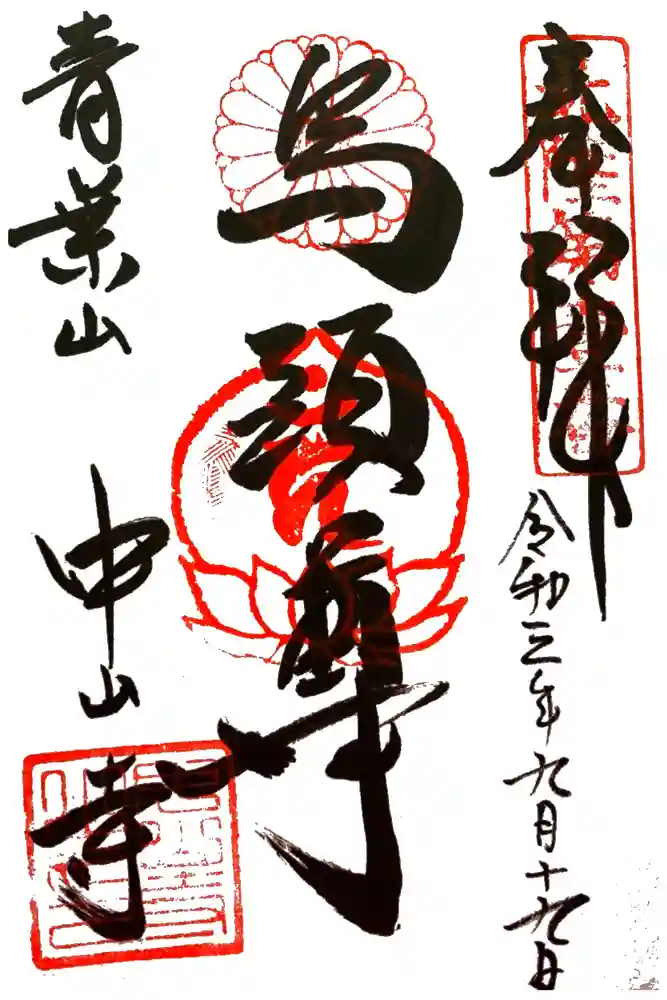 奉拝
令和三年九月十九日
馬頭尊
青葉山
中山寺